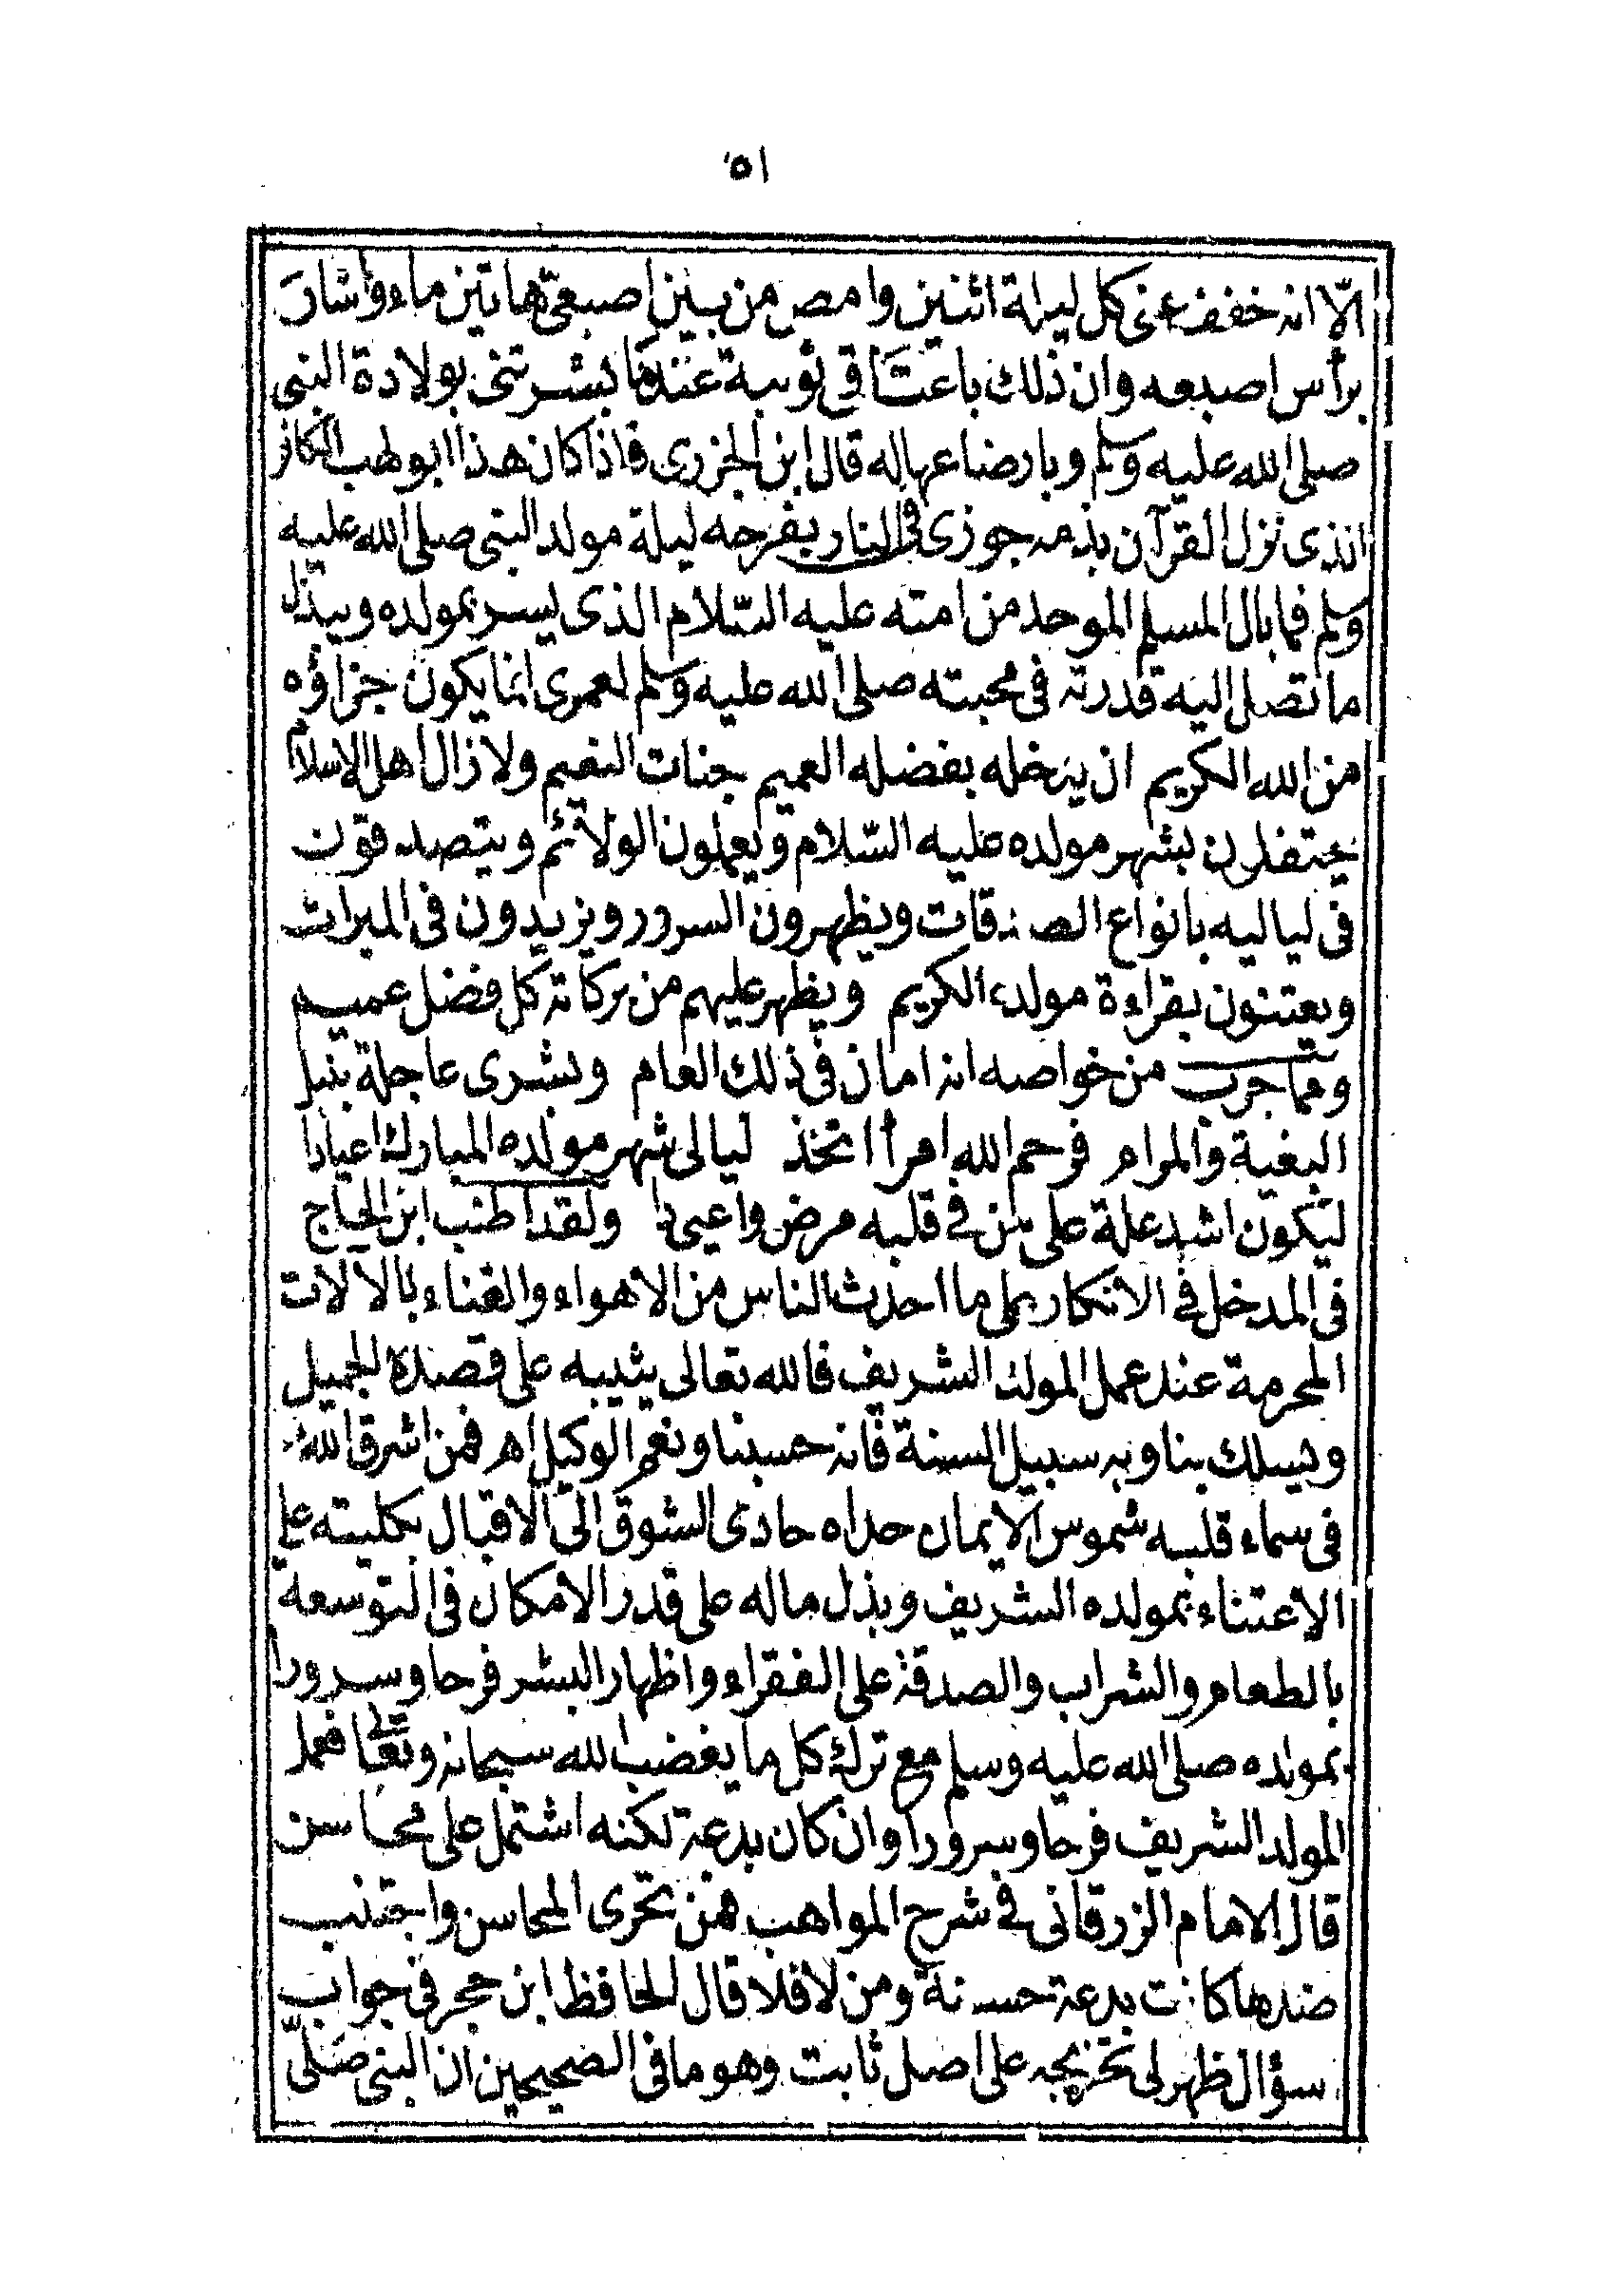 ٥١
الّا انه خفف عنى كل ليلة اثنين وامص من بين اصبعى هاتين ماء واشار
برأس اصبعه وان ذلك باعتاقى ثويبة عندما بشرتنى بولادة النبى
صلى الله عليه وسلم وبارضاعها له قال ابن الجزرى فاذا كان هذا ابو لهب الكافر
الذى نزل القرآن بذمه جوزى فى النار بفرحه ليلة مولد النبى صلى الله عليه
وسلم فما بال المسلم الموحد من امته عليه السّلام الذى يسر بمولده ويبذل
ما تصل اليه قدرته فى محبته صلى الله عليه وسلم لعمرى انما يكون جزاؤه
من الله الكريم ان يدخله بفضله العميم جنات النعيم ولا زال اهل الاسلام
يحتفلون بشهر مولده عليه السّلام ويعملون الولائم ويتصدقون
فى لياليه بانواع الصدقات ويظهرون السرور ويزيدون فى المبرات
ويعتنون بقراءة مولده الكريم ويظهر عليهم من بركاته كل فضل عميم
ومما جرب من خواصه انه امان فى ذلك العام وبشرى عاجلة بنيل
البغية والمرام فرحم الله امرأ اتخذ ليالى شهر مولده المبارك اعيادا
ليكون اشد علة على من فى قلبه مرض واعيى دا ولقد اطنب ابن الحاج
فى المدخل فى الانكار على ما احدث الناس من الاهواء والغناء بالآلات
المحرمة عند عمل المولد الشريف فالله تعالى يثيبه على قصده الجميل
ويسلك بنا وبه سبيل السنة فانه حسبنا ونعم الوكيل اه فمن اشرق الله
فى سماء قلبه شموس الايمان حداه حادى الشوق الى الاقبال بكليته على
الاعتناء بمولده الشريف وبذل ماله على قدر الامكان فى التوسعة
بالطعام والشراب والصدقة على الفقراء واظهار البشر فرحا وسرورا
بمولده صلى الله عليه وسلم مع ترك كل ما يغضب الله سبحانه وتعالى فعمل
المولد الشريف فرحا وسرورا وان كان بدعة لكنه اشتمل على محاسن
قال الامام الزرقانى فى شرح المواهب فمن تحرى المحاسن واجتنب
ضدها كانت بدعة حسنة ومن لا فلا قال الحافظ ابن حجر فى جواب
سؤال ظهر لى تخريجه على اصل ثابت وهو ما فى الصحيحين ان النبى صلّى